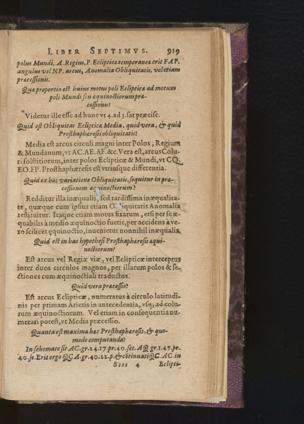 LIBER SEPTIMVS. 919
polus Mundi, A. Regius, P. Eclipticæ temporanea erit FAP,
angulus vel NP. arcus, Anomalia Obliquitatis, vel etiam
præcessionis.
Quæ proportio est huius motus poli Eclipticæ ad motum
poli Mundi sũ æquinoctiorum præ-
cessionis?
Videtur ille esse ad hunc vt 4. ad 3. fat præcise.
Quid est Obliquitas Eclipticæ Media, quid vera, & quid
Prosthaphæresis obliquitatis?
Media est arcus circuli magni inter Polos, Regium
& Mundanum, vt AC. AE. AF. &c. Vera est, arcus Colu-
ri solstitiorum, inter polos Eclipticæ & Mundi, vt CQ.
EO. FP. Prosthaphæresis est vtriusque differentia.
Quid ex hac variatione Obliquitatis, sequitur in præ-
cessionem æquinoctiorum?
Redditur illa inæqualis, sed tardissima inæqualita-
te, quæque cum ipsius etiam Obliquitatis Anomalia
restituitur. Itaque etiam motus fixarum, etsi per se æ-
quabilis à medio æquinoctio fuerit, per accidens à ve-
ro scilicet æquinoctio, inuenietur nonnihil inæqualis.
Quid est in hac hypothesi Prosthaphæresis æqui-
noctiorum?
Est arcus vel Regiæ viæ, vel Eclipticæ interceptus
inter duos circulos magnos, per illarum polos & se-
ctiones cum æquinoctiali traductos.
Quid vera præcessio?
Est arcus Eclipticæ, numeratus à circulo latitudi-
nis per primam Arietis in antecedentia, vsq; ad colu-
rum æquinoctiorum. Vel etiam in consequentia nu-
merari potest, vt Media præcessio.
Quanta est maxima hæc Prosthaphæresis, & quo-
modo computanda?
In schemate sit AC. gr. 24. 17. pr. 40. sec. AQ gr. 1. 47. pr.
40. se. Erit ergo QCA gr. 40. 22. p. & continuatâ QC. AC. in
Sss 4 Ecliptî-